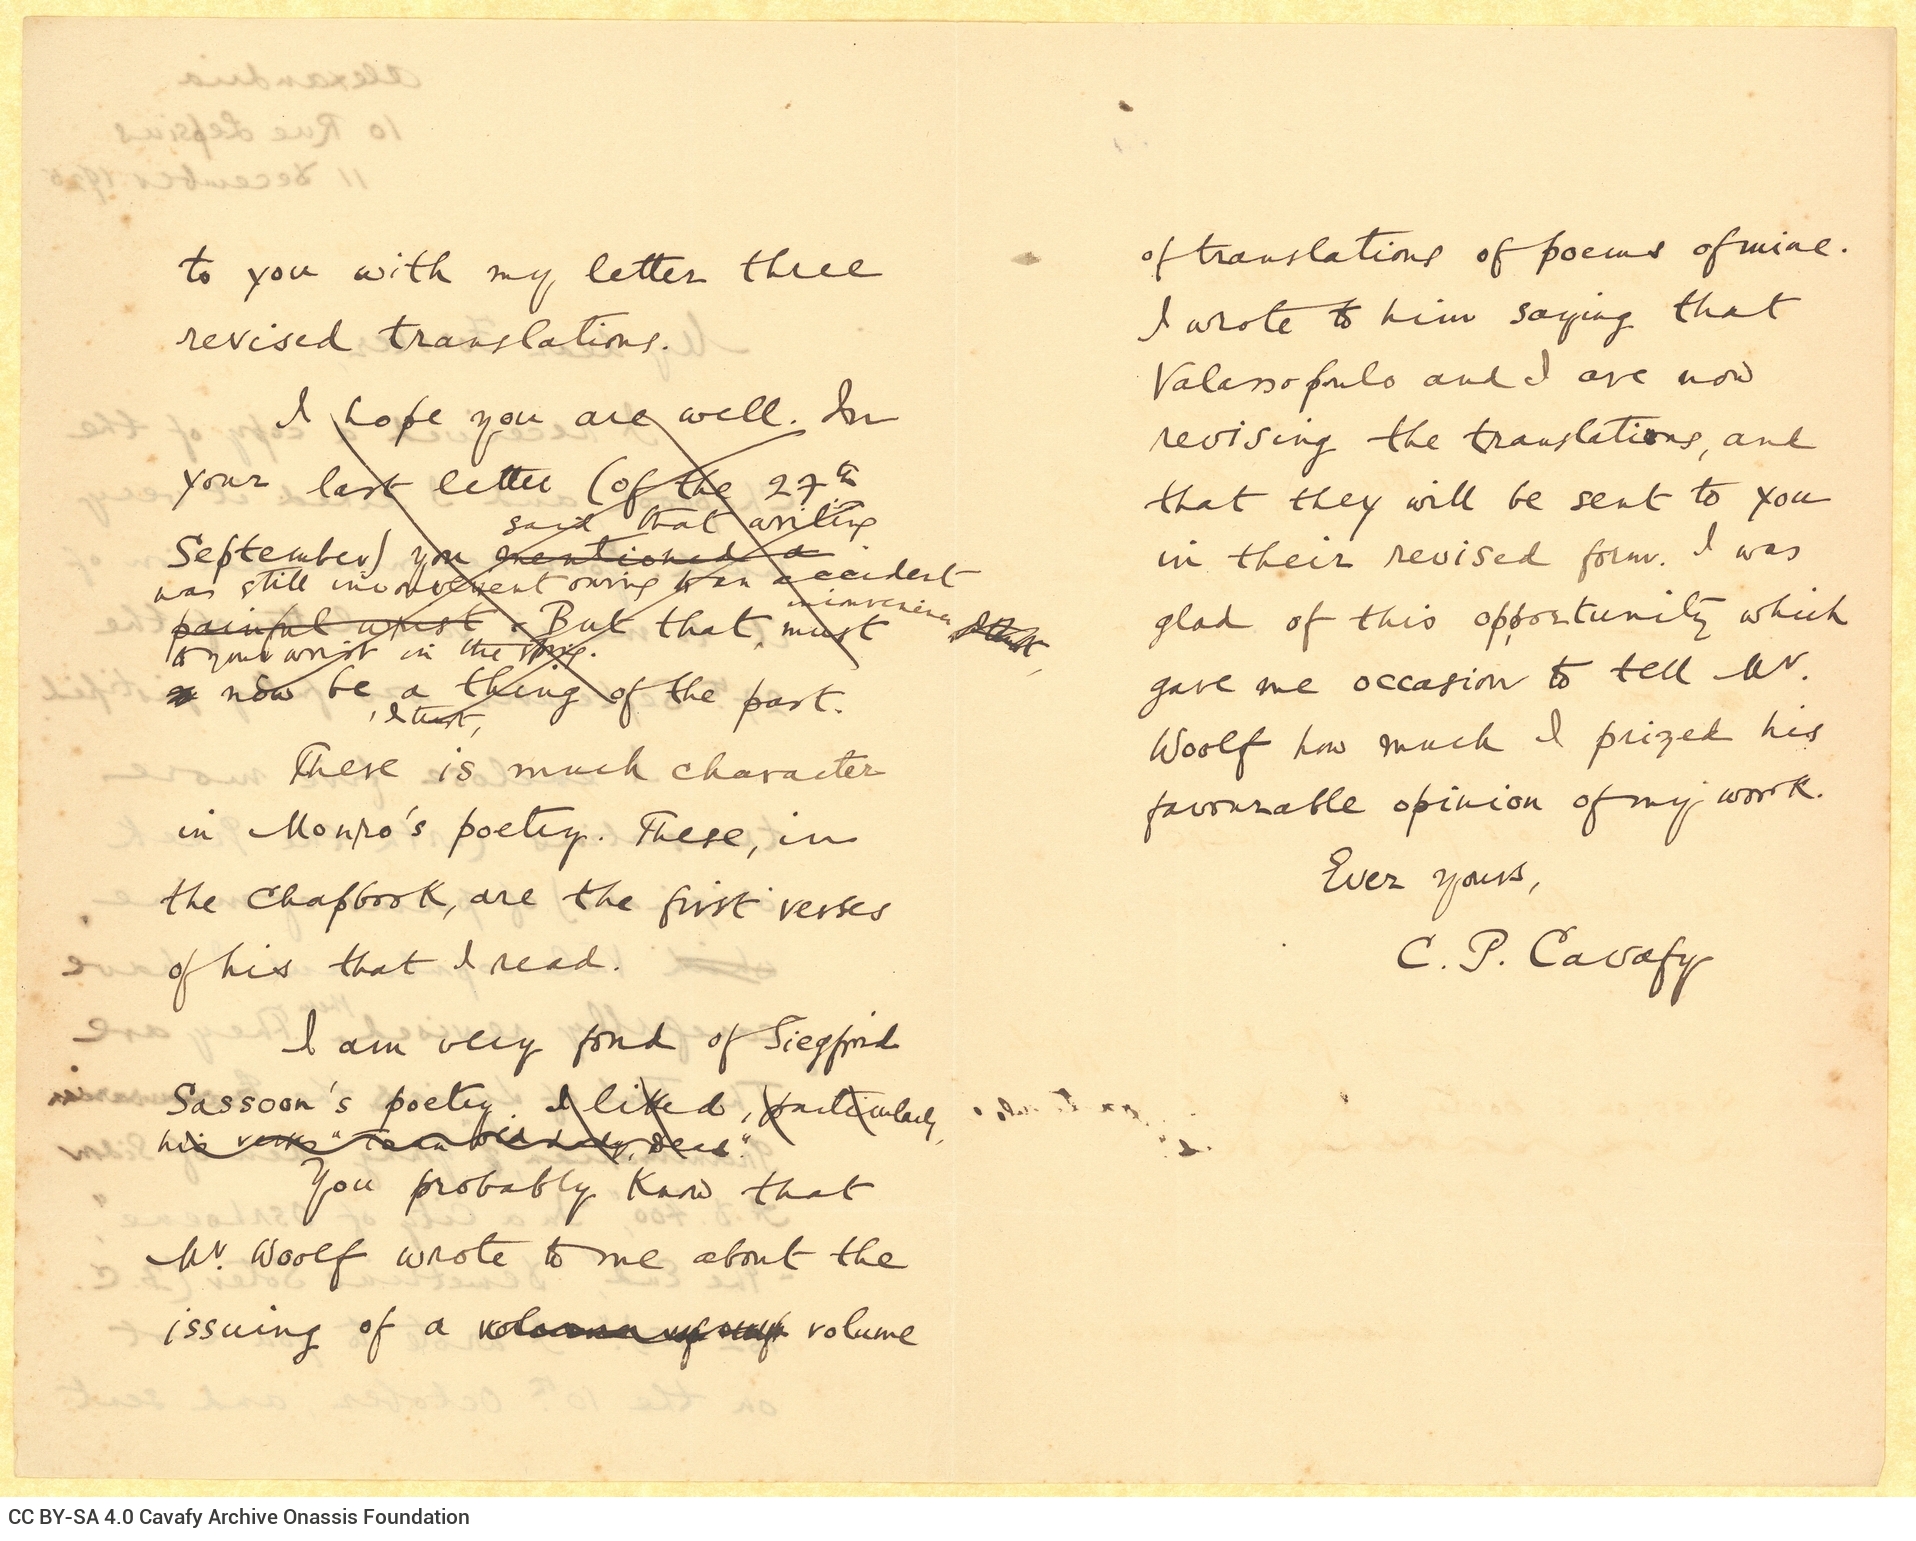 to you with my letter three
revised translations.
I hope you are well. In
your last letter (of the 27th
said that writing
September) you mentioned a
was still inconvenient owing to an accident
painful wrist. But that inconvenience must
to your wrist in the spring.
now be a thing of the past.
, I trust,
There is much character
in Monro's poetry. These, in
the Chapbook, are the first verses
of his that I read.
I am very fond of Siegfrid
Sassoon's poetry. I liked, particularly,
his verses "To an Old Lady, Dead".
You probably know that
Mr. Woolf wrote to me about the
issuing of a volume of my volume
of translations of poems of mine.
I wrote to him saying that
Valassopoulo and I are now
revising the translations, and
that they will be sent to you
in their revised form. I was
glad of this opportunity which
gave me occasion to tell Mr.
Woolf how much I prized his
favourable opinion of my work.
Ever yours,
C. P. Cavafy
CC BY-SA 4.0 Cavafy Archive Onassis Foundation